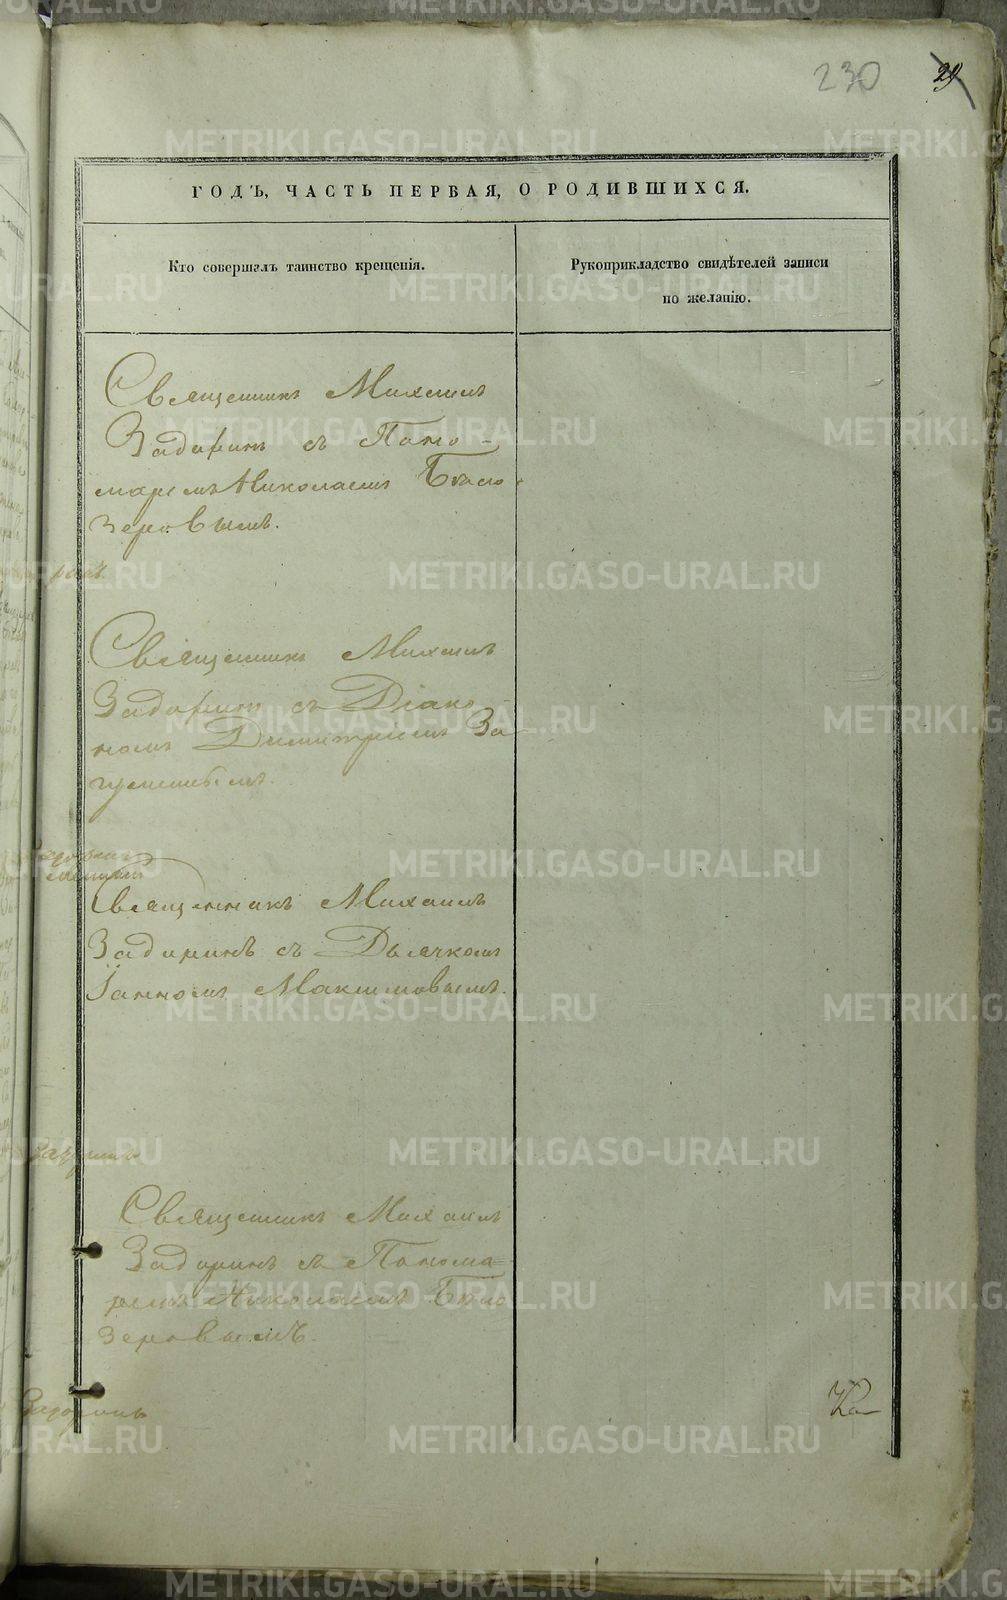 230 29
ГОДЪ, ЧАСТЬ ПЕРВАЯ, О РОДИВШИХСЯ.
Кто совершалъ таинство крещенія.
Рукоприкладство свидѣтелей записи
по желанію.
Священникъ Михаилъ
Задоринъ съ Поно-
маремъ Николаемъ Бѣло-
зеровымъ.
Священникъ Михаилъ
Задоринъ съ Діако
номъ Димитріемъ За
Священникъ Михаилъ
Задоринъ съ Дьячкомъ
Іанномъ Максимовымъ.
Священникъ Михаилъ
Задоринъ съ Понома=
ремъ Николаемъ Бѣло
зеровымъ.
Задоринъ
METRIKI.GASO-URAL.RU